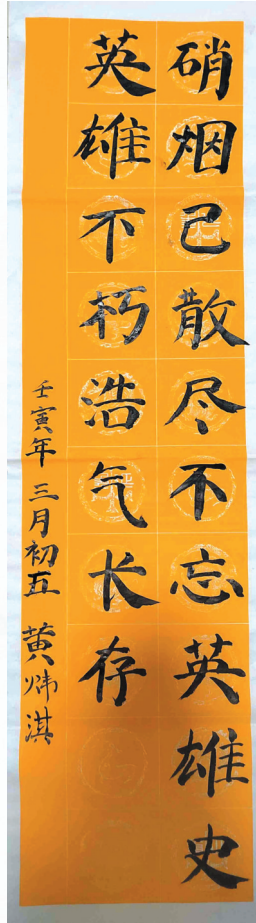 硝烟已散尽不忘英雄史
英雄不朽浩气长存
壬寅年三月初五黄炜淇